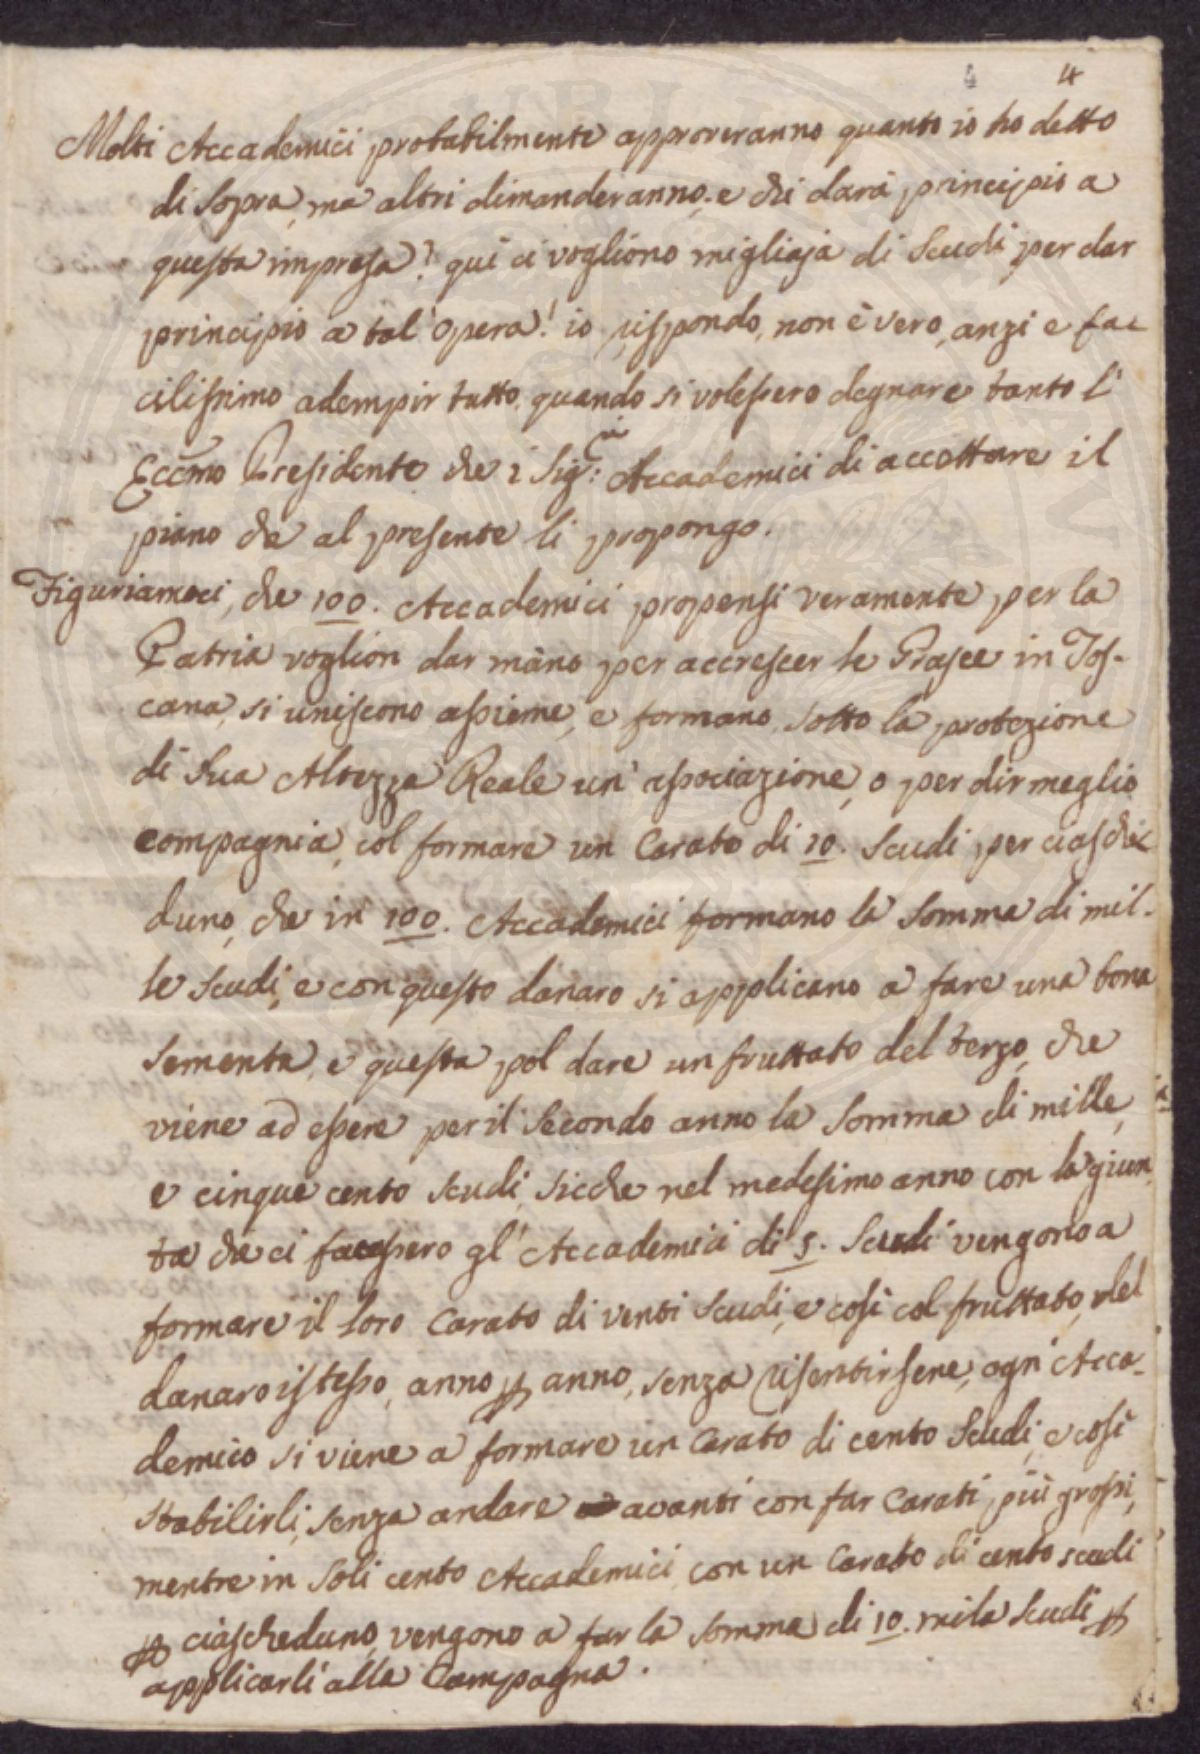 4 4
Molti Accademici probabilmente approveranno quanto io ho detto
di Sopra, ma altri dimanderanno, e chi darà principio a
questa impresa? qui ci vogliono migliaja di Scudi per dar
principio a tal' Opera! io rispondo, non è vero, anzi e fa=
cilissimo adempir tutto, quando si volessero degnare tanto l'
Eccmo Presidente che i Sig:ri Accademici di accettare il
piano che al presente li propongo.
Figuriamoci, che 100. Accademici propensi veramente per la
Patria voglion dar mano per accrescer le Grasce in Tos-
cana, si uniscono assieme, e formano sotto la protezione
di Sua Altezza Reale un' associazione, o per dir meglio
compagnia, col formare un Carato di 10. Scudi per ciasche
duno, che in 100. Accademici formano la Somma di mil-
le Scudi, e con questo danaro si applicano a fare una bona
Sementa, e questa pol dare un fruttato del terzo, che
viene ad essere per il Secondo anno la Somma di mille,
e cinque cento Scudi, Sicche nel medesimo anno con la giun
ta che ci facessero gl' Accademici di 5. Scudi vengono a
formare il loro Carato di venti Scudi, e così col fruttato, del
danaro istesso, anno p anno, senza risentirsene, ogn' Acca-
demico si viene a formare un Carato di cento Scudi, e così
stabilirli, senza andare avanti con far Carati più grossi,
mentre in Soli cento Accademici con un Carato di cento scudi
p ciascheduno, vengono a far la Somma di 10. mila Scudi p
applicarli alla Campagna.